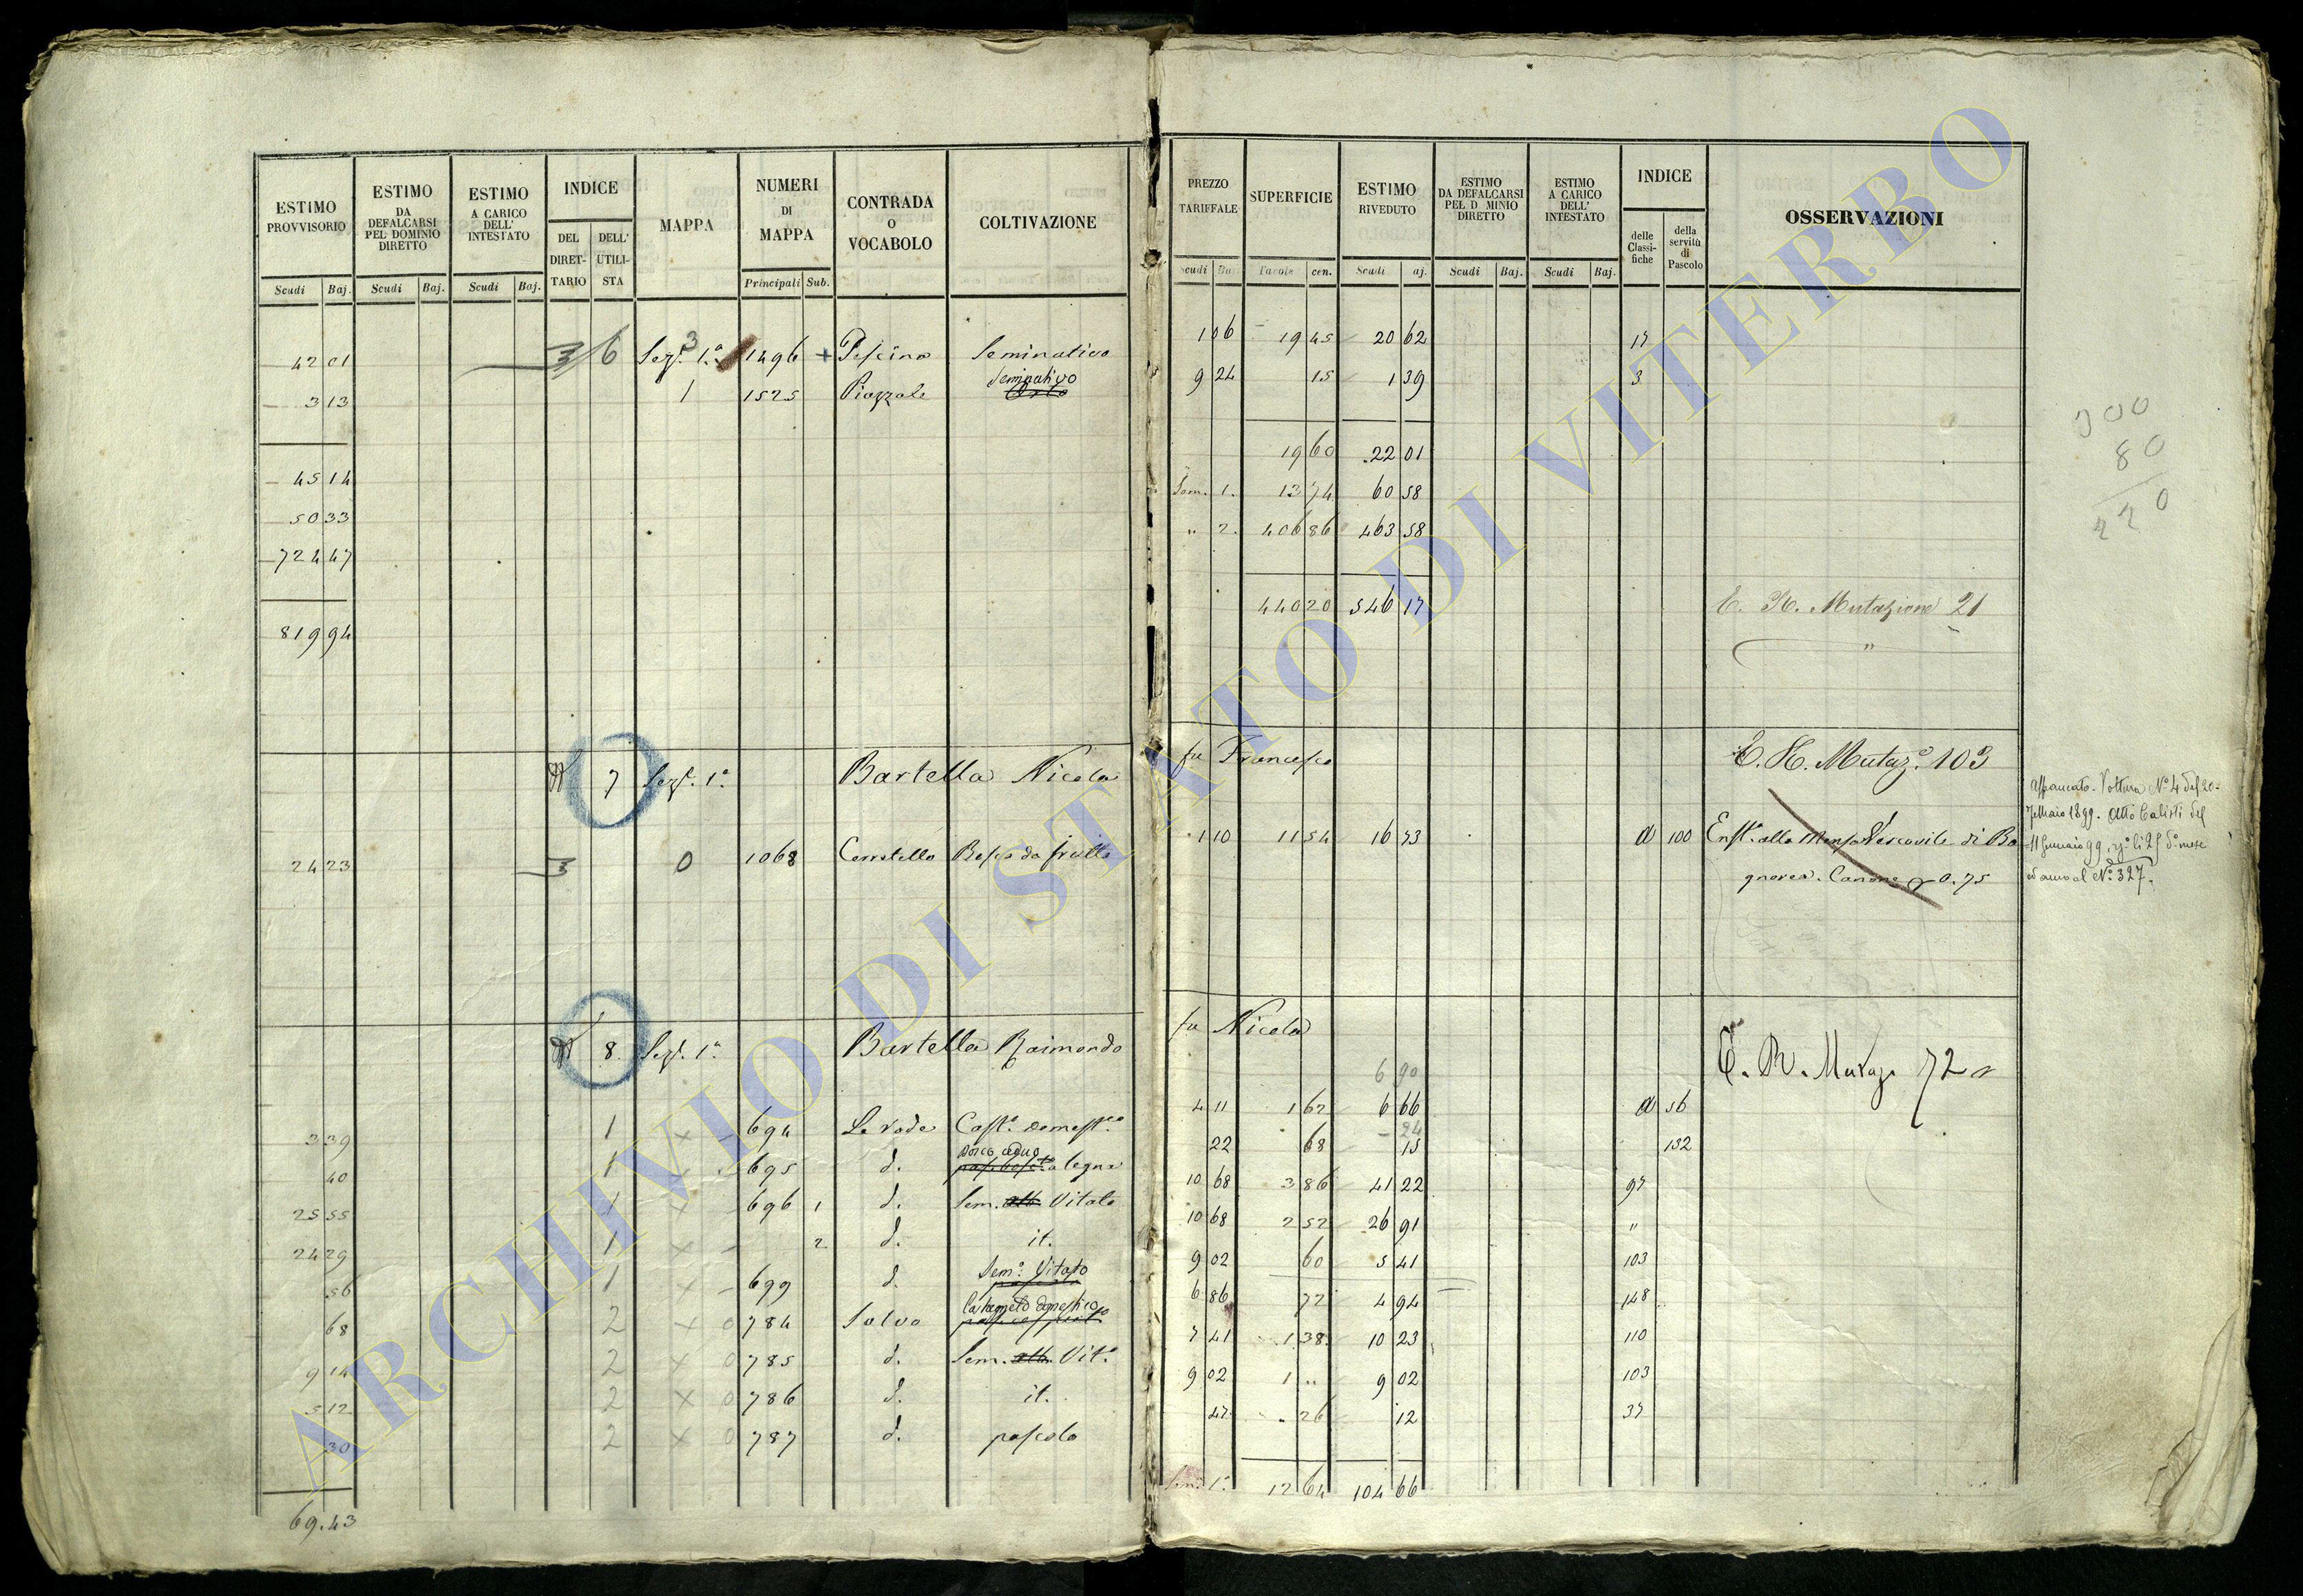 ESTIMO PROVVISORIO
ESTIMO DA DEFALCARSI PEL DOMINIO DIRETTO
ESTIMO A CARICO DELL' INTESTATO
INDICE
DEL DIRET-TARIO
DELL' UTILI-STA
MAPPA
NUMERI DI MAPPA
CONTRADA O VOCABOLO
COLTIVAZIONE
Scudi Baj. Scudi Baj. Scudi Baj. Principali Sub.
42 01 3 6 Sezⁿ. 1.ª 3 1496 + Pescina Seminativo
3 13 1 1525 Piazzale Seminativo
45 14
50 33
724 47
819 94
7 Sezⁿ. 1.ª Bartella Nicola
24 23 3 0 1068 Cerretello Bosco da frutto
8. Sezⁿ. 1.ª Bartella Raimondo
3 39 1 x - 694 Le rode Castº. Domestº.
40 1 x - 695 d. Bosco ceduo a legna
25 55 1 x - 696 1 d. Sem. Vitato
24 29 1 x - 2 d. it.
56 1 x - 699 d. Semº. Vitato
68 2 x 0 784 Salvo Castagneto domestico
9 14 2 x 0 785 d. Sem. Vitº.
5 12 2 x 0 786 d. it.
30 2 x 0 787 d. pascolo
69.43
PREZZO TARIFFALE
SUPERFICIE
ESTIMO RIVEDUTO
ESTIMO DA DEFALCARSI PEL D MINIO DIRETTO
ESTIMO A CARICO DELL' INTESTATO
INDICE
delle Classi-fiche
della servitù di Pascolo
OSSERVAZIONI
Scudi Ba. Tavole cen. Scudi aj. Scudi Baj. Scudi Baj.
1 06 19 45 20 62 17
9 24 15 1 39 3
19 60 22 01
Sem. 1. 13 74 60 58
" 2. 406 86 463 58
440 20 546 17 E. R. Mutazione 21
"
300
80
220
fu Francesco E. R. Mutazº. 103
1 10 11 54 16 73 a 100 Enfª. alla Mensa Vescovile di Ba
gnorea. Canone 0.75
Affrancato. Voltura Nº 4 del 20
Febbraio 1899. Atto Calisti del
11 Gennaio 99
al Nº. 327.
fu Nicola
E. R. Mutaz 72
6 90
4 11 1 62 6 66 a 56
24
22 68 15 132
10 68 3 86 41 22 97
10 68 2 52 26 91 "
9 02 60 5 41 103
6 86 72 4 94 148
7 41 1 38 10 23 110
9 02 1 " 9 02 103
47 " 26 12 37
Sem. 1.ª 12 64 104 66
ARCHIVIO DI STATO DI VITERBO